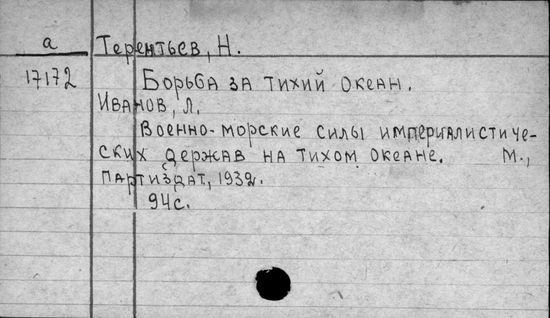 а Терентьев, Н.
17172 Борьба за Тихий океан.
Иванов, Л.
Военно-морские силы империалистиче-
ских держав на Тихом океане. М.,
Партиздат, 1932.
94с.